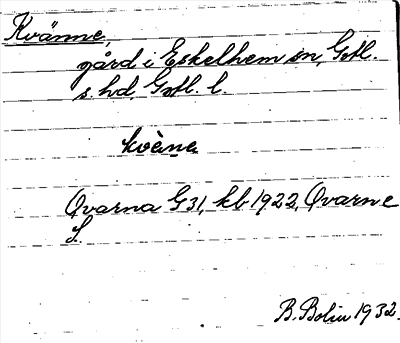 Kvänne,
gård i Eskelhem sn, Gotl.
s. hd, Gotl. l.
kvène
Qvarna G31, kb 1922, Qvarne
L.
B. Bolin 1932.